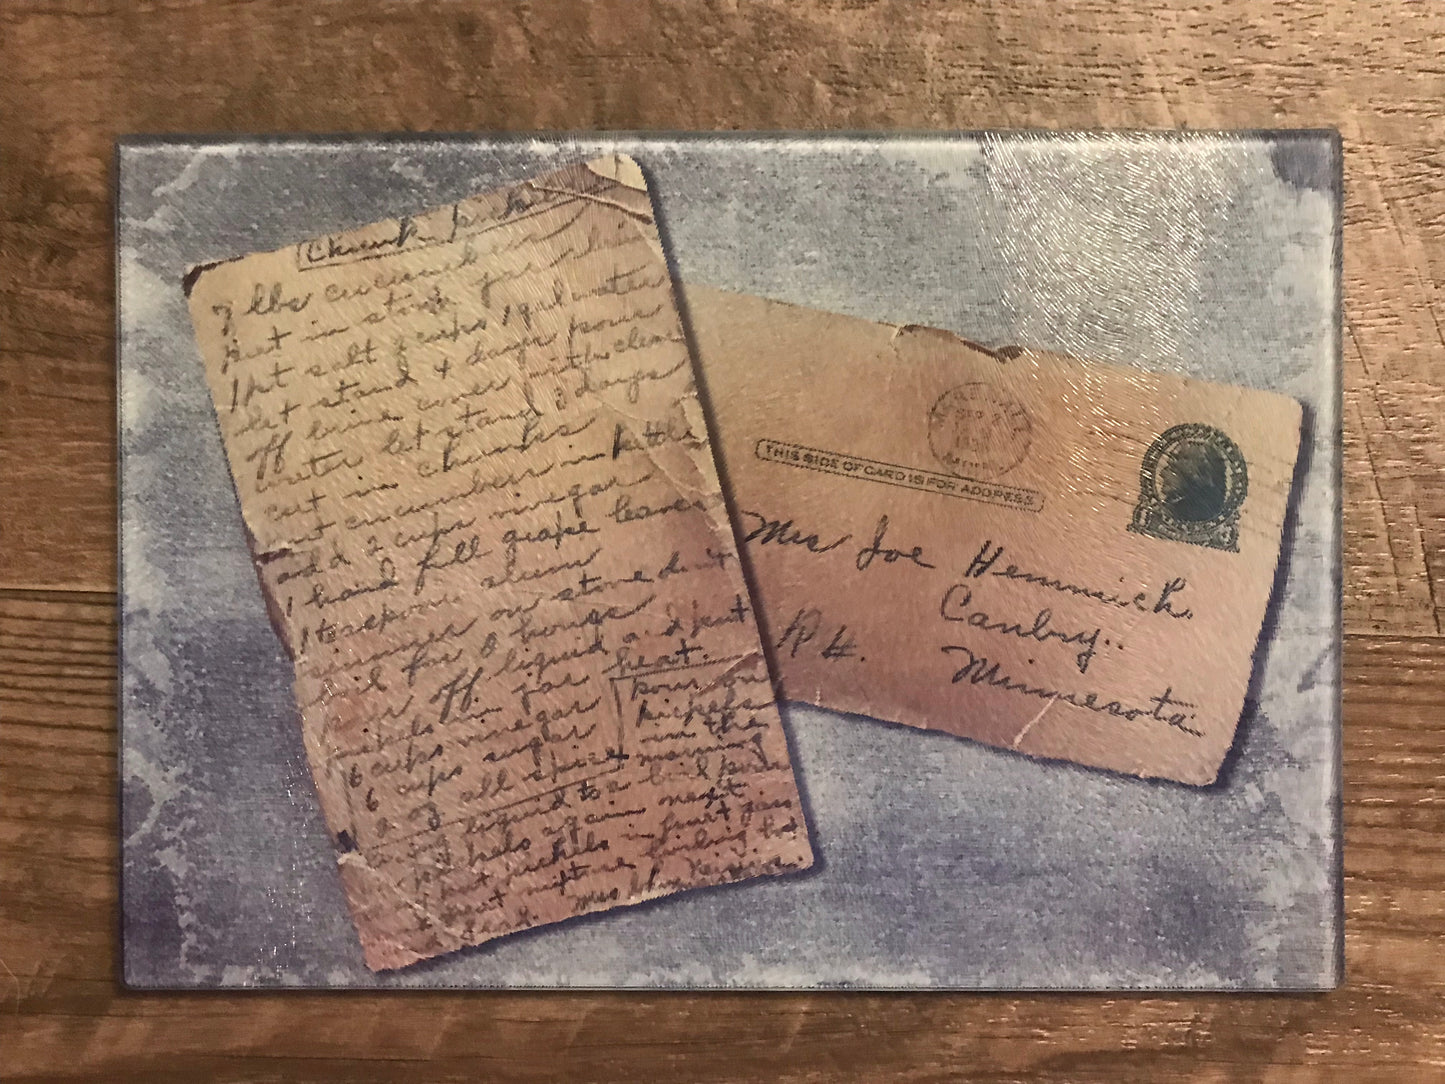 Chunk Pickles
7 lbs cucumbers
Put in stone jar
1 pt salt 1 qal water
let stand 4 days pour
off brine cover with clear
water let stand 3 days
cut in chunks
put cucumbers in kettle
add 2 cups vinegar
1 hand full grape leaves
1 teaspoon alum
simmer on stove don't
boil for hours
pour off liquid and put
pickels in jar
6 cups vinegar
6 cups sugar
2 oz all spice
heat.
pour on
pickels
in the
morning
liquid to a boil pour
again next
put pickels in fruit jars
boiling hot
Mrs
THIS SIDE OF CARD IS FOR ADDRESS
SEP
MINN
Mrs Joe Hemmich
Canby.
R 4.
Minnesota